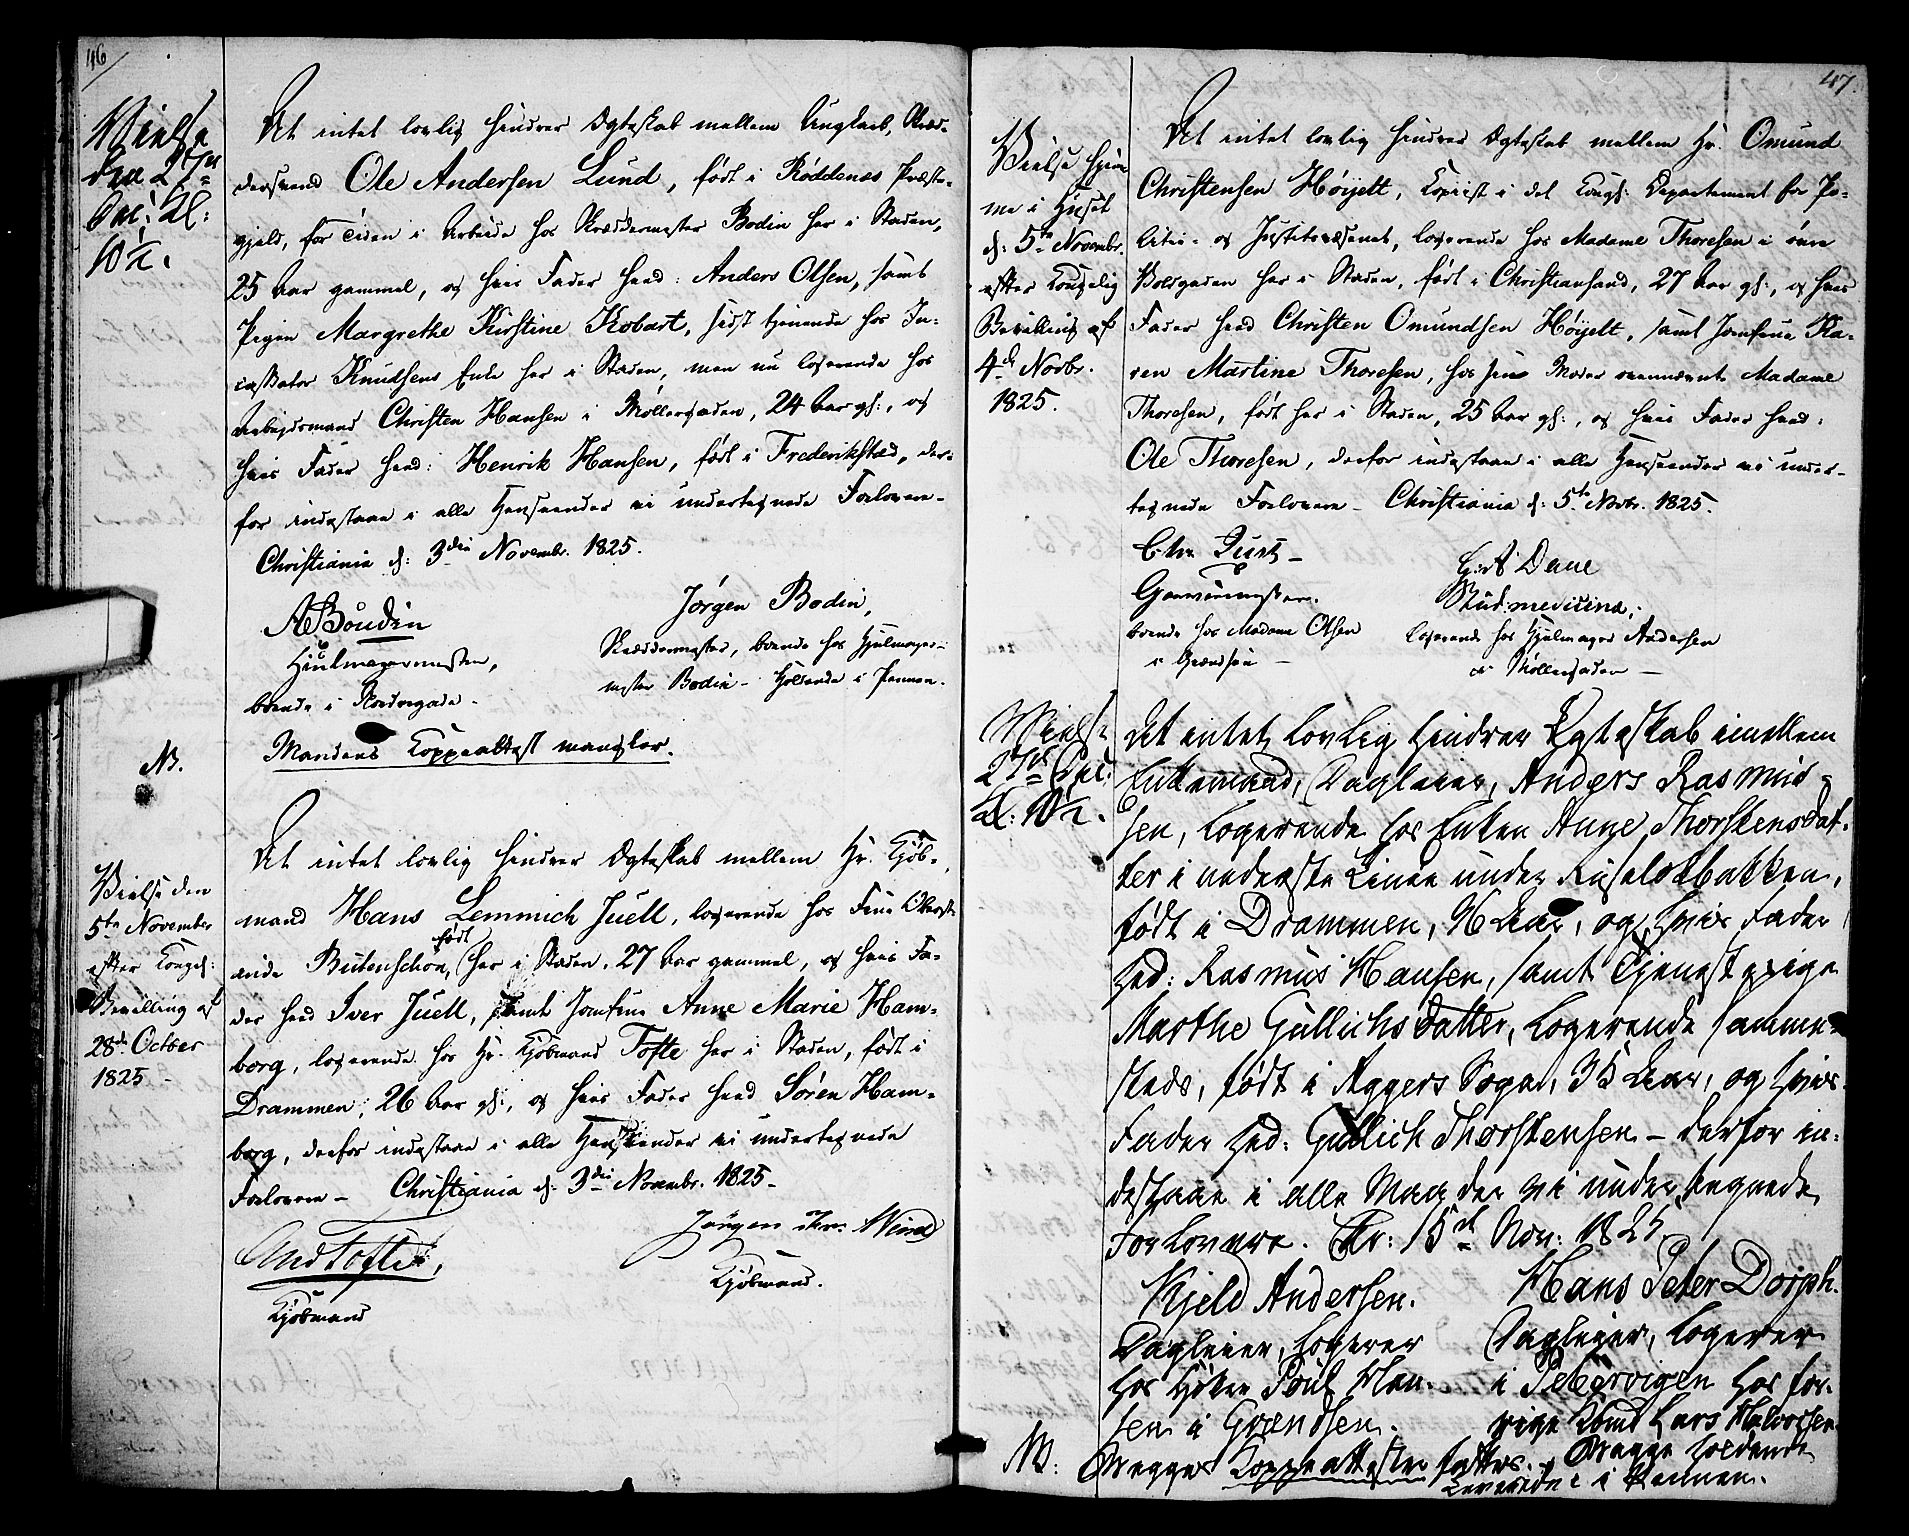 46
Vielse
den 27de
Dec: Kl:
10½.
At intet lovlig hindrer Ægteskab mellem Ungkarl, Skræd-
dersvend Ole Andersen Lund, født i Røddenes Præste-
gjeld, for Tiden i Arbeide hos Skræddermester Bodin her i Staden,
25 Aar gammel, og hvis Fader heed: Anders Olsen, samt
Pigen Margrethe Kirstine Kobart, sidst tjenende hos In-
Knudsens Enke her i Staden, men nu logerende hos
Arbejdsmand Christen Hansen i Møllergaden, 24 Aar gl:, og
hvis Fader heed: Henrik Hansen, født i Frederikstad, der-
for indestaae i alle Henseender vi undertegnede Forlovere -
Christiania d: 3die Novembr. 1825.
A Boudin
Hjulmagermester,
boende i Storvgade.
Jørgen Bodin,
Skræddermester, boende hos Hjulmager-
mester Bodin - Holdende i Pennen.
NB.
Mandens Koppeattest mangler.
Vielse den
5te November
efter Kongel:
Bevilling af
28de October
1825 -
At intet lovlig hindrer Ægteskab mellem Hr. Kjøb-
mand Hans Lemmich Juell, logerende hos Frue Oberst-
inde Butenschøn, født her i Staden, 27 Aar gammel, og hvis Fa-
der heed Iver Juell, samt Jomfrue Anne Marie Ham-
borg, logerende hos Hr. Kjøbmand Tofte her i Staden, født i
Drammen, 26 Aar gl:, og hvis Fader heed Søren Ham-
borg, derfor indestaae i alle Henseender vi undertegnede
Forlovere - Christiania d: 3die Novembr. 1825 -
And Tofte,
Kjøbmand
Jørgen Wind
Kjøbmand.
47.
Vielse hjem-
me i Huset
d: 5te Novembr.
efter Kongelig
Bevilling af
4de Novbr.
1825.
At intet lovlig hindrer Ægteskab mellem Hr. Omund
Christensen Høijelt, Copiist i det Kongl: Departement for Po-
litie- og Justitsvæsenet, logerende hos Madame Thoresen i øvre
Voldgaden her i Staden, født i Christiansand, 27 Aar gl:, og hvis
Fader heed Christen Omundsen Høijelt, samt Jomfrue Ka-
ren Martine Thoresen, hos sin Moder ovennævnte Madame
Thoresen, født her i Staden, 25 Aar gl:, og hvis Fader heed:
Ole Thoresen, derfor indestaae i alle Henseender vi under-
tegnede Forlovere - Christiania d: 5te Novbr. 1825.
Chr.
Garvermester.
boende hos Madame Olsen
i Grændsen -
Daue
Stud: medicina,
logerende hos Hjulmager Andersen
i Møllergaden -
Vielse
27de Dec:
Kl: 10½.
At intet Lovlig Hindrer Ægteskab imellem
Enkemand, Dagleier, Anders Rasmus-
sen, Logerende hos Enken Anne Thorstensdat-
ter i nederste Linee under Ruseløkbakken,
født i Drammen, Aar, og hvis Fader
hed: Rasmus Hansen, samt Tjenestepige
Marthe Gullichsdatter, Logerende samme-
steds, født i Aggers Sogn, 35 Aar, og hvis
Fader hed: Gullich Thorstensen - derfor in-
destaae i alle Maader vi undertegnede
Forlovere. Chr: 15de Nov: 1825.
Kjeld Andersen.
Dagleier, Logerer
hos Høker Poul Han-
sen i Grændsen.
Hans Peter Dorph.
Dagleier, Logerer
i Pebervigen hos for-
rige Lars Halvorsen
NB: Begges Koppeattester fattes. Begge holdende
i Pennen.